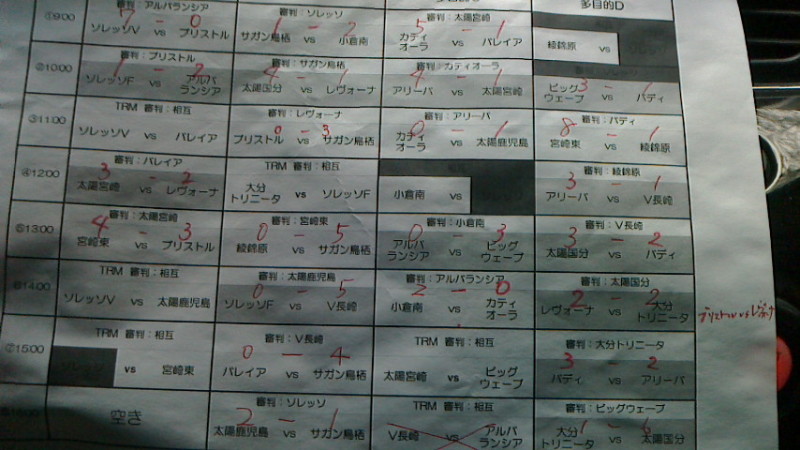 審判:アルバランシア
審判:ソレッソ
審判:太陽宮崎
多目的D
①9:00
7 - 0
ソレッソV vs ブリストル
1 - 2
サガン鳥栖 vs 小倉南
5 - 1
カティオーラ vs バレイア
綾錦原 vs
②10:00
審判:ブリストル
審判:サガン鳥栖
審判:カティオーラ
ソレッソF vs アルバランシア
4 - 1
太陽国分 vs レヴォーナ
4 - 1
アリーバ vs 太陽宮崎
3 - 1
ビッグウェーブ vs バディ
③11:00
TRM 審判:相互
審判:レヴォーナ
審判:アリーバ
審判:バディ
ソレッソV vs バレイア
0 - 3
ブリストル vs サガン鳥栖
0 - 1
カティオーラ vs 太陽鹿児島
8 - 1
宮崎東 vs 綾錦原
④12:00
審判:バレイア
TRM 審判:相互
審判:綾錦原
3 - 2
太陽宮崎 vs レヴォーナ
大分トリニータ vs ソレッソF
小倉南 vs
3 - 1
アリーバ vs V長崎
⑤13:00
審判:太陽宮崎
審判:宮崎東
審判:小倉南
審判:V長崎
4 - 3
宮崎東 vs ブリストル
0 - 5
綾錦原 vs サガン鳥栖
0 - 3
アルバランシア vs ビッグウェーブ
3 - 2
太陽国分 vs バディ
⑥14:00
TRM 審判:相互
審判:太陽鹿児島
審判:アルバランシア
審判:太陽国分
ソレッソV vs 太陽鹿児島
0 - 5
ソレッソF vs V長崎
2 - 0
小倉南 vs カティオーラ
レヴォーナ vs 大分トリニータ
ブリストル vs レヴォーナ
⑦15:00
TRM 審判:相互
審判:V長崎
TRM 審判:相互
審判:大分トリニータ
vs 宮崎東
0 - 4
バレイア vs サガン鳥栖
太陽宮崎 vs ビッグウェーブ
3 - 2
バディ vs アリーバ
空き
審判:ソレッソ
TRM 審判:相互
審判:ビッグウェーブ
2 - 1
太陽鹿児島 vs サガン鳥栖
V長崎 vs アルバランシア
1 - 6
大分トリニータ vs 太陽国分